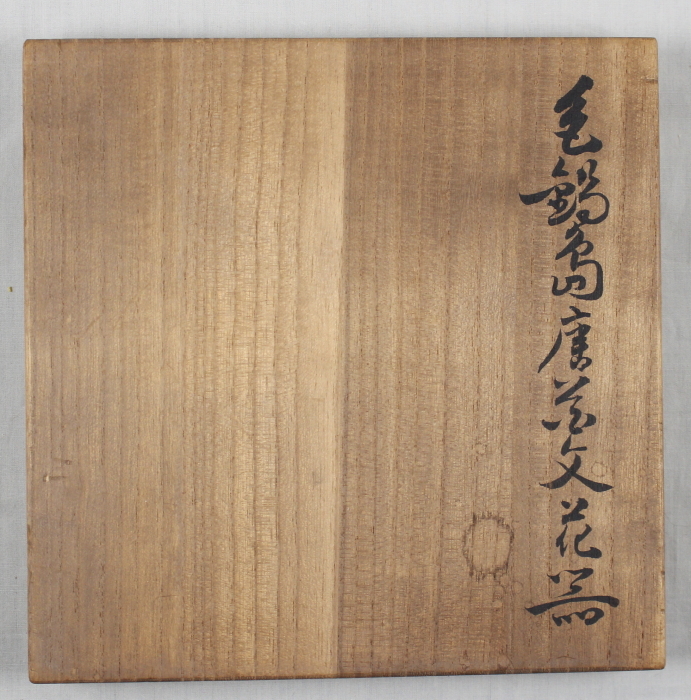 色鍋島唐花文花器